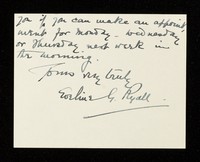 you if you can make an appoint,
ment for Monday. Wednesday
or Thursday next week in
the morning.
Yours very truly
G. Ryall.